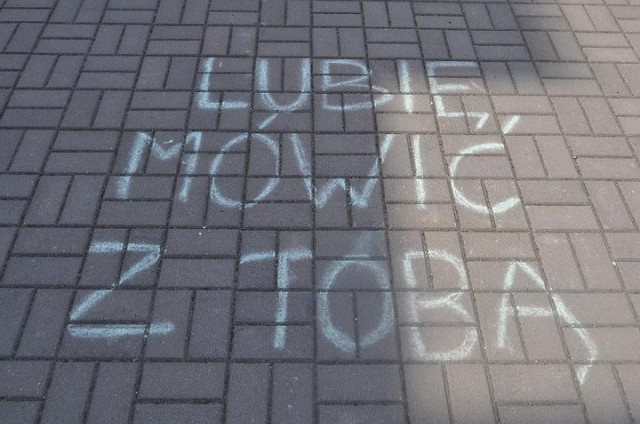 LUBIĘ
MÓWIĆ
Z TOBĄ